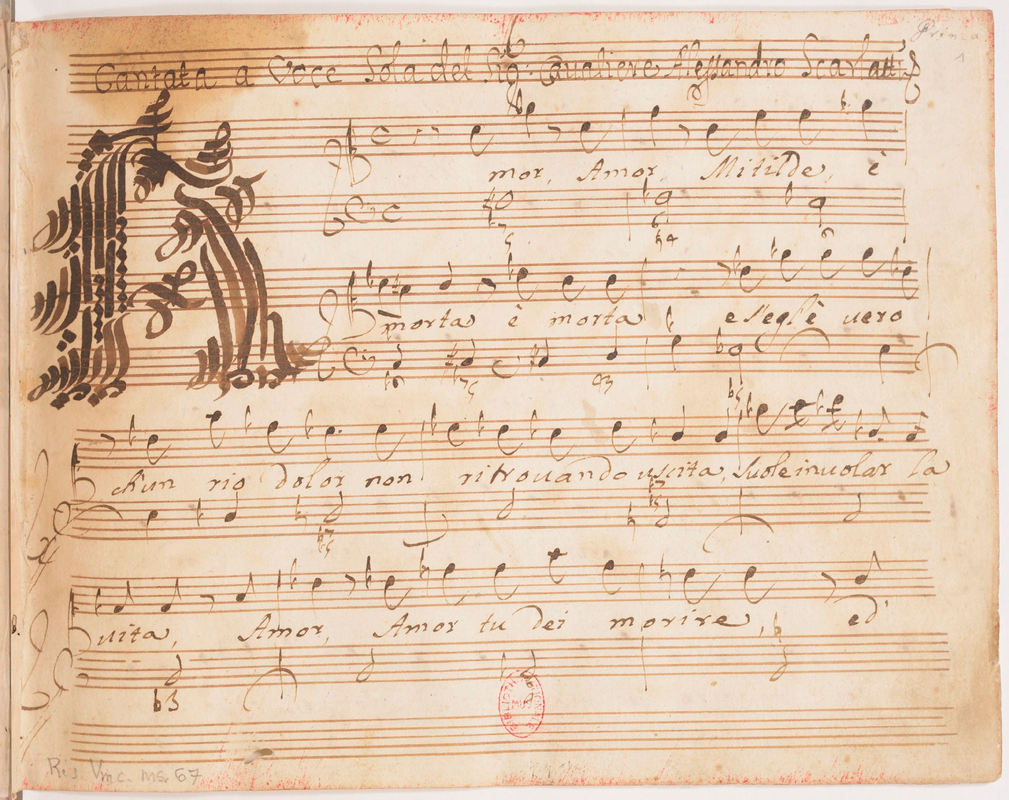 Prima
1
Cantata a Voce Sola del Sig: Caualiere Alessandro Scarlatti
A
mor, Amor, Mitilde, è
morta è morta e s'egl'è uero
ch'un rio dolor non ritrouando uscita, suole inuolar la
uita, Amor, Amor tu dei morire, ed'
BIBLIOTH
Res Vmc. ms. 67